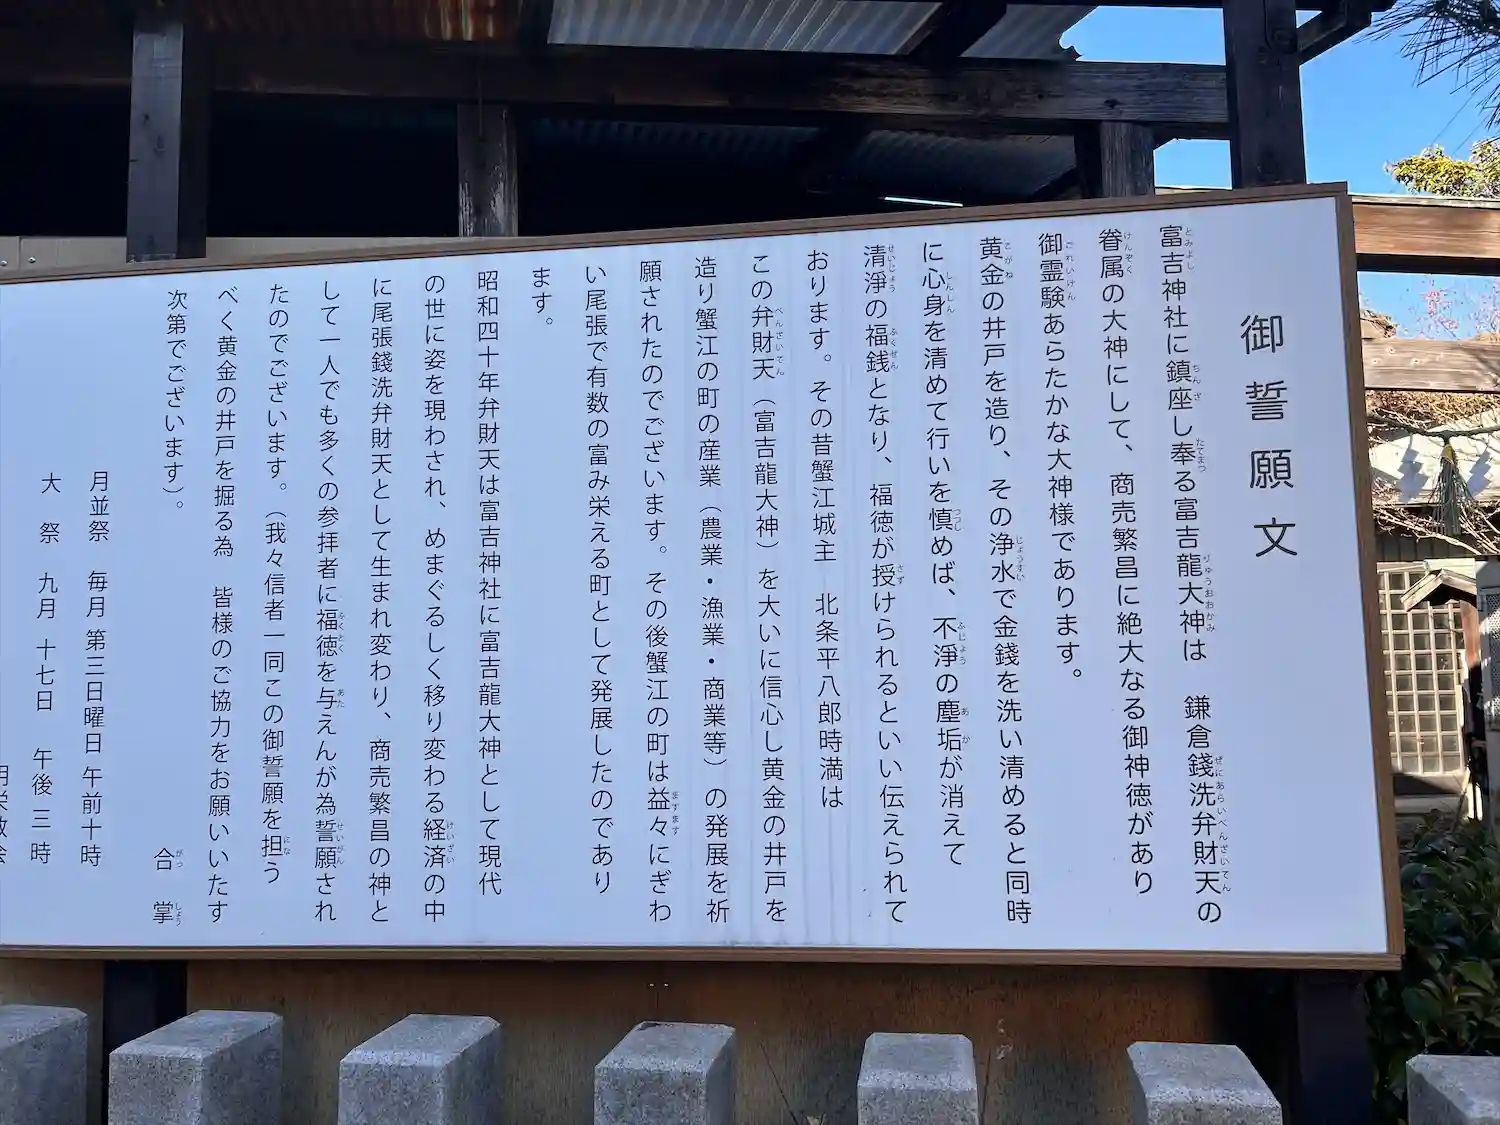 御誓願文
富吉神社に鎮座し奉る富吉龍大神は　鎌倉錢洗弁財天の
眷属の大神にして、商売繁昌に絶大なる御神徳があり
御霊験あらたかな大神様であります。
黄金の井戸を造り、その浄水で金錢を洗い清めると同時
に心身を清めて行いを慎めば、不淨の塵垢が消えて
清淨の福銭となり、福徳が授けられるといい伝えられて
おります。その昔蟹江城主　北条平八郎時満は
この弁財天（富吉龍大神）を大いに信心し黄金の井戸を
造り蟹江の町の産業（農業・漁業・商業等）の発展を祈
願されたのでございます。その後蟹江の町は益々にぎわ
い尾張で有数の富み栄える町として発展したのであり
ます。
昭和四十年弁財天は富吉神社に富吉龍大神として現代
の世に姿を現わされ、めまぐるしく移り変わる経済の中
に尾張錢洗弁財天として生まれ変わり、商売繁昌の神と
して一人でも多くの参拝者に福徳を与えんが為誓願され
たのでございます。（我々信者一同この御誓願を担う
べく黄金の井戸を掘る為　皆様のご協力をお願いいたす
次第でございます）。
合　掌
月並祭　毎月 第三日曜日 午前十時
大　祭　九月 十七日　午後 三 時